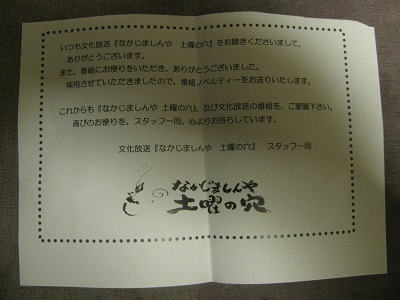 いつも文化放送『なかじましんや　土曜の穴』をお聴きくださいまして、
ありがとうございます。
また、番組にお便りをいただき、ありがとうございました。
採用させていただきましたので、番組ノベルティーをお送りいたします。
これからも『なかじましんや 土曜の穴』、及び文化放送の番組を、ご愛聴下さい。
再びのお便りを、スタッフ一同、心よりお待ちしています。
文化放送『なかじましんや　土曜の穴』　スタッフ一同
なかじましんや
土曜の穴